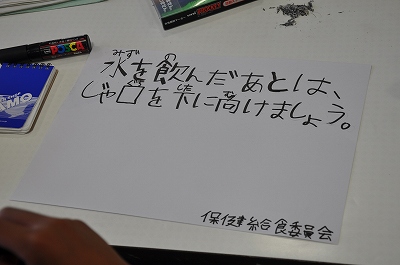 みず の
水を飲んだあとは、
じゃ口を下に向けましょう。
保健給食委員会
POSCA